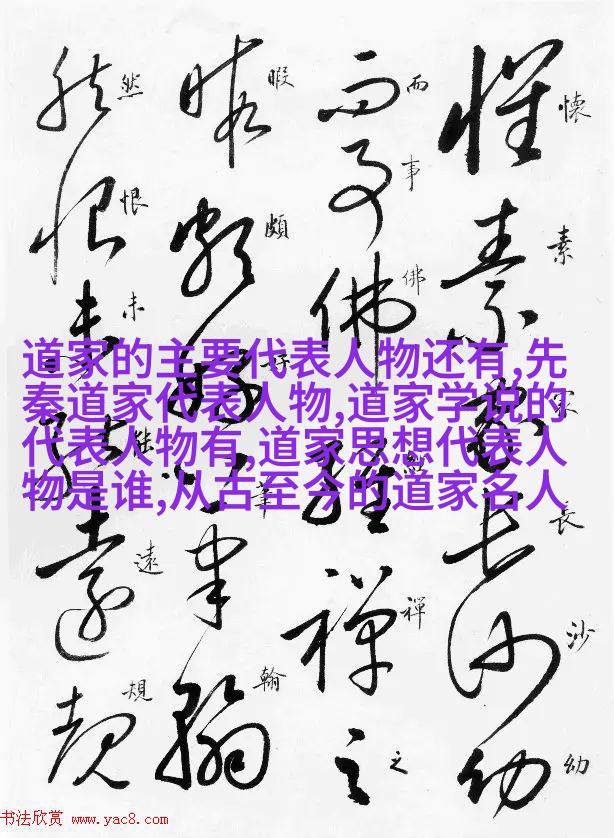 懷素家長沙幼
而事佛經禪之
暇頗好筆翰
然恨未能遠規
道家的主要代表人物还有,先
秦道家代表人物,道家学说的
代表人物有,道家思想代表人
物是谁,从古至今的道家名人
书法欣赏 www.yac8.com